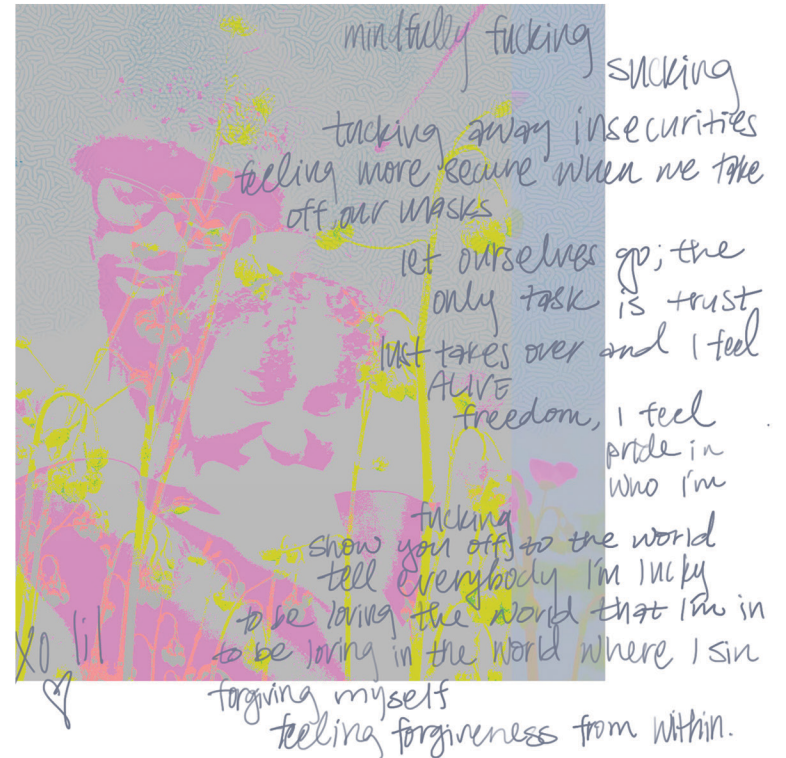 mindfully fucking
sucking
tucking away insecurities
feeling more secure when we take
off our masks
let ourselves go; the
only task is trust
lust takes over and I feel
ALIVE
freedom, I feel
pride in
who i'm
fucking
show you off to the world
tell everybody I'm lucky
to be loving the world that I'm in
to be loving in the world where I sin
xo lil
forgiving myself
feeling forgiveness from within.